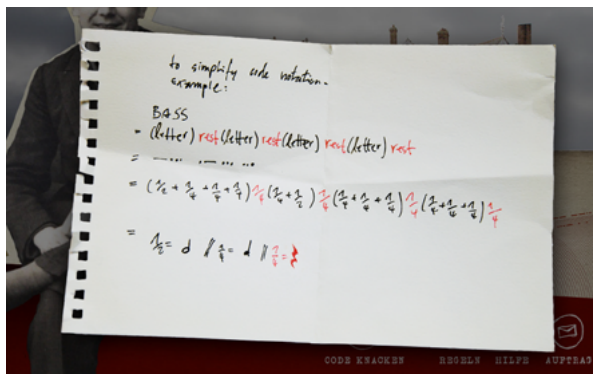 to simplify code notation.
example:
BASS
= (letter) rest (letter) rest (letter) rest (letter) rest
= —... .— ... ...
= (1/2 + 1/4 + 1/4 + 1/4) 1/4 (1/4 + 1/2) 1/4 (1/4 + 1/4 + 1/4) 1/4 (1/4 + 1/4 + 1/4) 1/4
=
1/2 = d // 1/4 = d // 1/4 = 𝄽
CODE KNACKEN REGELN HILFE AUFTRAG